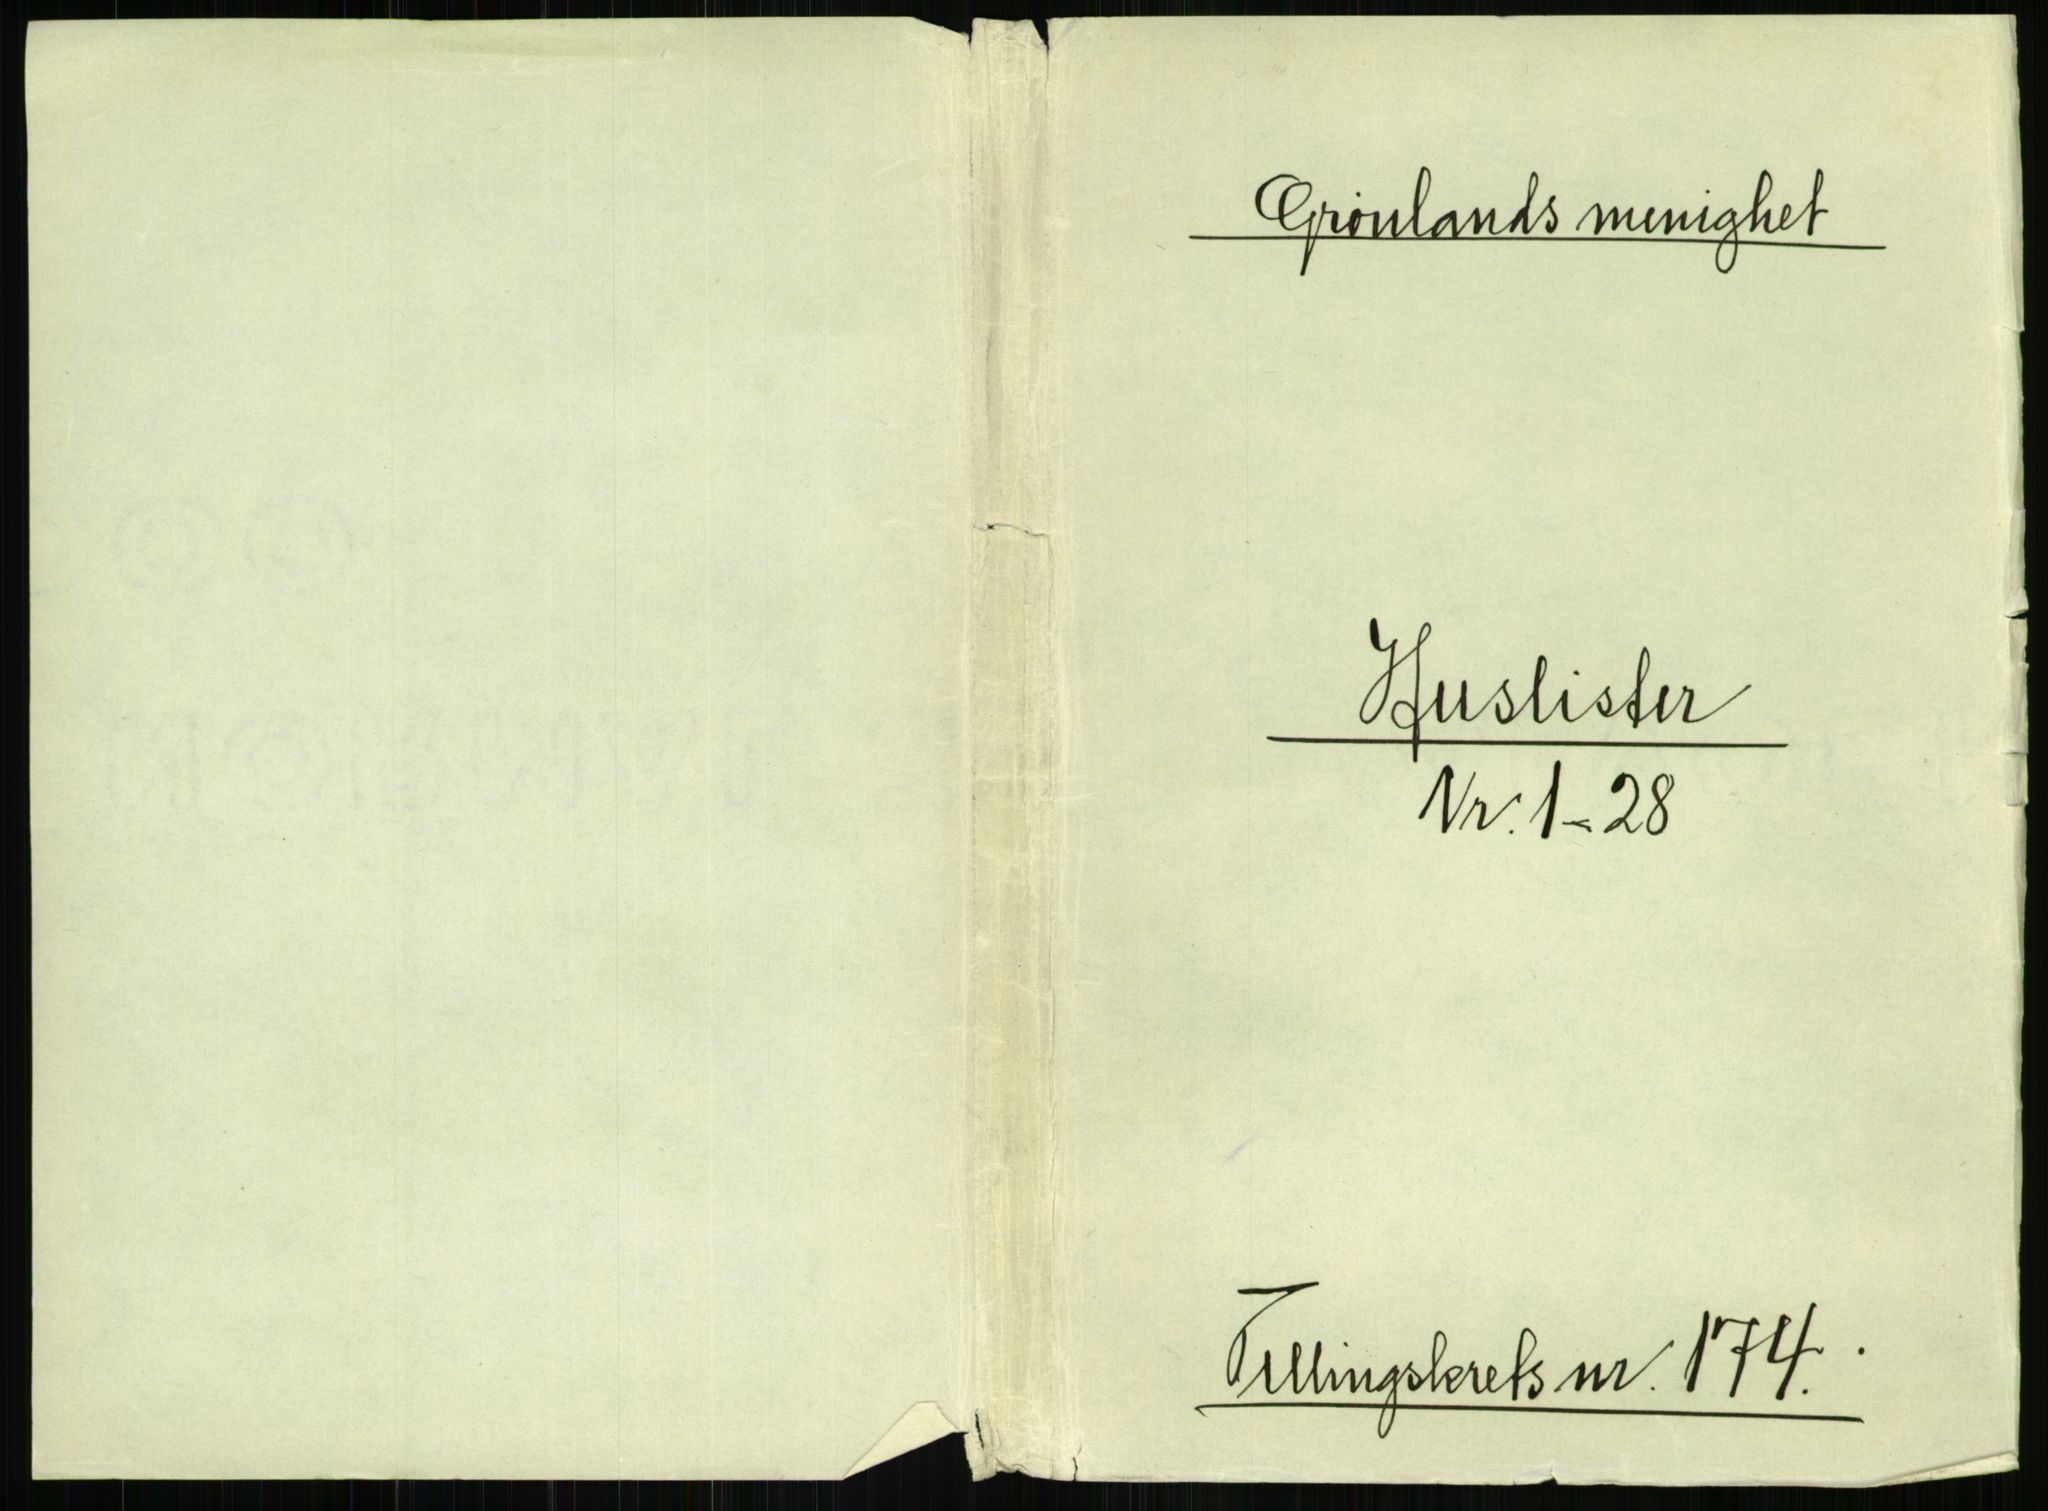 Grønlands menighet
Huslister
Nr. 1-28
Tellingskrets nr. 174.